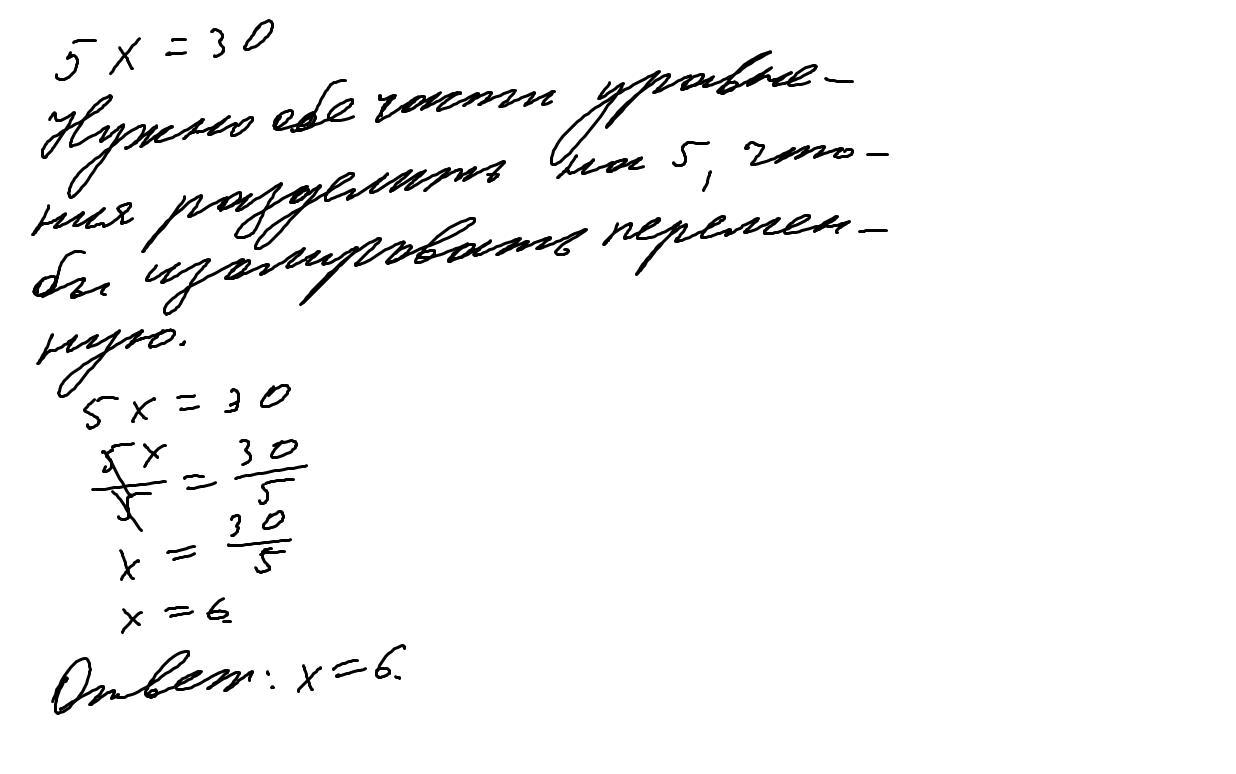 5x = 30
Нужно обе части уравне-
ния разделить на 5, что-
бы изолировать перемен-
ную.
5x = 30
5x/5 = 30/5
x = 30/5
x = 6
Ответ: x = 6.